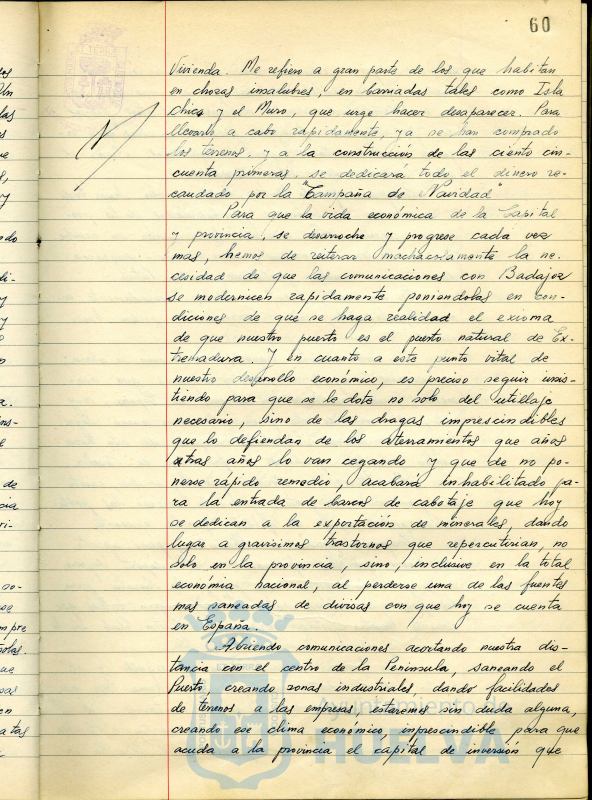 60
Vivienda. Me refiero a gran parte de los que habitan
en chozas insalubres, en barriadas tales como Isla
Chica y el Muro, que urge hacer desaparecer. Para
llevarlo a cabo rapidamente, ya se han comprado
los terrenos, y a la construcción de las ciento cin-
cuenta primeras, se dedicará todo el dinero re-
caudado por la "Campaña de Navidad"
Para que la vida económica de la Capital
y provincia, se desarrolle y progrese cada vez
mas, hemos de reiterar machaconamente la ne-
cesidad de que las comunicaciones con Badajoz
se modernicen rapidamente poniendolas en con-
diciones de que se haga realidad el exioma
de que nuestro puerto es el puerto natural de Ex-
tremadura. Y en cuanto a este punto vital de
nuestro desarrollo económico, es preciso seguir insis-
tiendo para que se le dote no solo del utillaje
necesario, sino de las dragas imprescindibles
que lo defiendan de los aterramientos que años
tras años lo van cegando y que de no po-
nerse rápido remedio, acabará inhabilitado pa-
ra la entrada de barcos de cabotaje que hoy
se dedican a la exportación de minerales, dando
lugar a gravisimos trastornos que repercutirian, no
solo en la provincia, sino, inclusive en la total
económia nacional, al perderse una de las fuentes
mas saneadas de divisas con que hoy se cuenta
en España.
Abriendo comunicaciones acortando nuestra dis-
tancia con el centro de la Peninsula, saneando el
Puerto, creando zonas industriales, dando facilidades
de terrenos a las empresas, estaremos sin duda alguna,
creando ese clima económico, inprescindible para que
acuda a la provincia el capital de inversión que
Ayuntamiento de
HUELVA